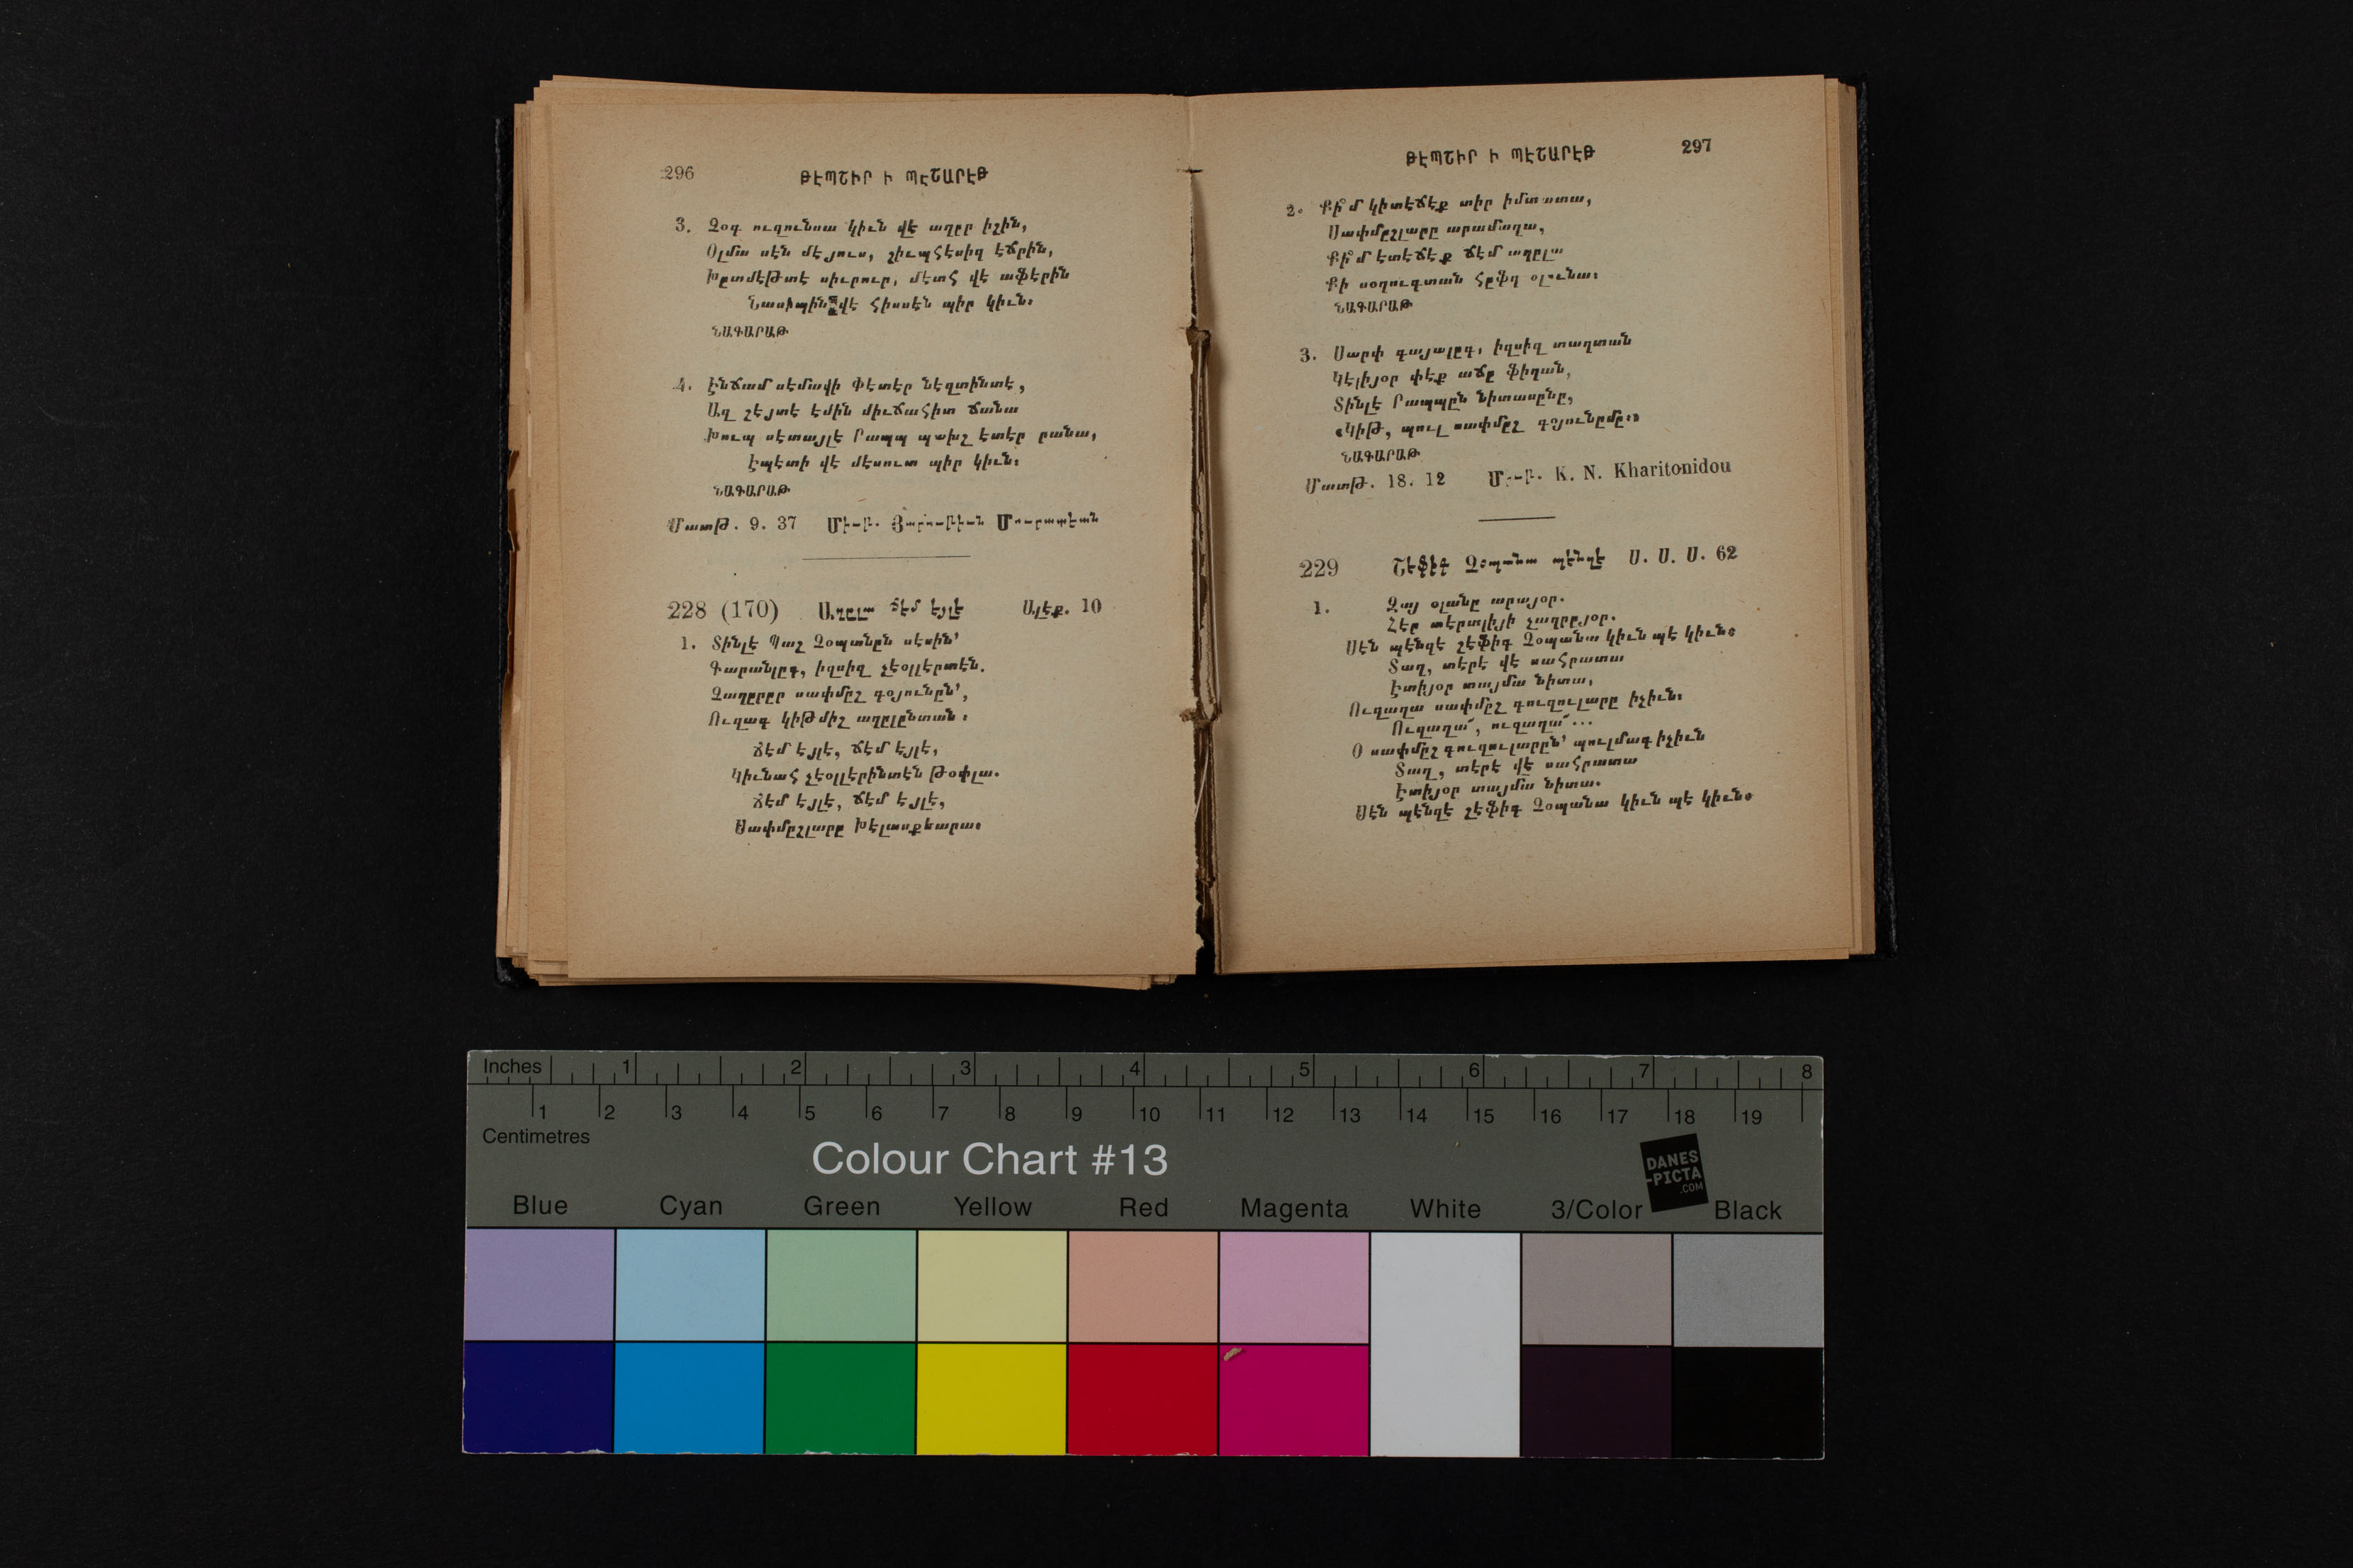 296
ԹԷՊՇԻՐ Ի ՊԷՇԱՐԷԹ
3. Չօգ ուզունսա կիւն վէ աղըր իշին,
Օլմա սէն մէյուս, շիւպհէսիզ էճրին,
Խըտմէթտէ սիւրուր, մէտհ վէ աֆէրին
Նասիպին վէ հիսսէն պիր կիւն։
ՆԱԳԱՐԱԹ
4. Էնճամ սէմավի Փէտէր նէզտինտէ,
Ազ շէյտէ էմին միւճահիտ ճանա
Խուպ սէտայլէ Րապպ պախշ էտէր րանա,
Էպէտի վէ մէսուտ պիր կիւն։
ՆԱԳԱՐԱԹ
Մատթ. 9. 37
228 (170) Աղըլա ճէմ էյլէ Այէք. 10
1. Տինլէ Պաշ Չօպանըն սէսին՝
Գարանլըգ, իզսիզ չէօլլէրտէն.
Չաղըրըր սափմըշ գօյունըն՝,
Ուզագ կիթմիշ աղըլընտան։
Ճէմ էյլէ, ճէմ էյլէ,
Կիւնահ չէօլլէրինտէն թօփլա.
Ճէմ էյլէ, ճէմ էյլէ,
Սափմըշլարը խէլասքեարա։
ԹԷՊՇԻՐ Ի ՊԷՇԱՐԷԹ
297
2. Քի՞մ կիտէճէք տիր իմտատա,
Սափմըշլարը արամաղա,
Քի՞մ էտէճէք ճէմ աղըլա
Քի սօղուգտան հըֆզ օլունա։
ՆԱԳԱՐԱԹ
3. Սարփ գայալըգ, իզսիզ տաղտան
Կէլիյօր փէք աճը ֆիղան,
Տինլէ Րապպըն նիտասընը,
«Կիթ, պուլ սափմըշ գօյունըմը։»
ՆԱԳԱՐԱԹ
Մատթ. 18. 12 Միւթ. K. N. Kharitonidou
229 Շէֆիգ Չօպանա պէնզէ Ս. Ս. Ս. 62
1. Զայ օլանը արայօր.
Հէր տէրտլիյի չաղըրյօր.
Սէն պէնզէ շէֆիգ Չօպանա կիւն պէ կիւն։
Տաղ, տէրէ վէ սահրատա
Էտիյօր տայմա նիտա,
Ուզաղա սափմըշ գուզուլարը իչիւն։
Ուզաղա՜, ուզաղա՜...
Օ սափմըշ գուզուլարըն՝ պուլմագ իչիւն
Տաղ, տէրէ վէ սահրատա
Էտիյօր տայմա նիտա.
Սէն պէնզէ շէֆիգ Չօպանա կիւն պէ կիւն։
Inches 1 2 3 4 5 6 7 8
1 2 3 4 5 6 7 8 9 10 11 12 13 14 15 16 17 18 19
Centimetres
Colour Chart #13
DANES
-PICTA
.COM
Blue Cyan Green Yellow Red Magenta White 3/Color Black